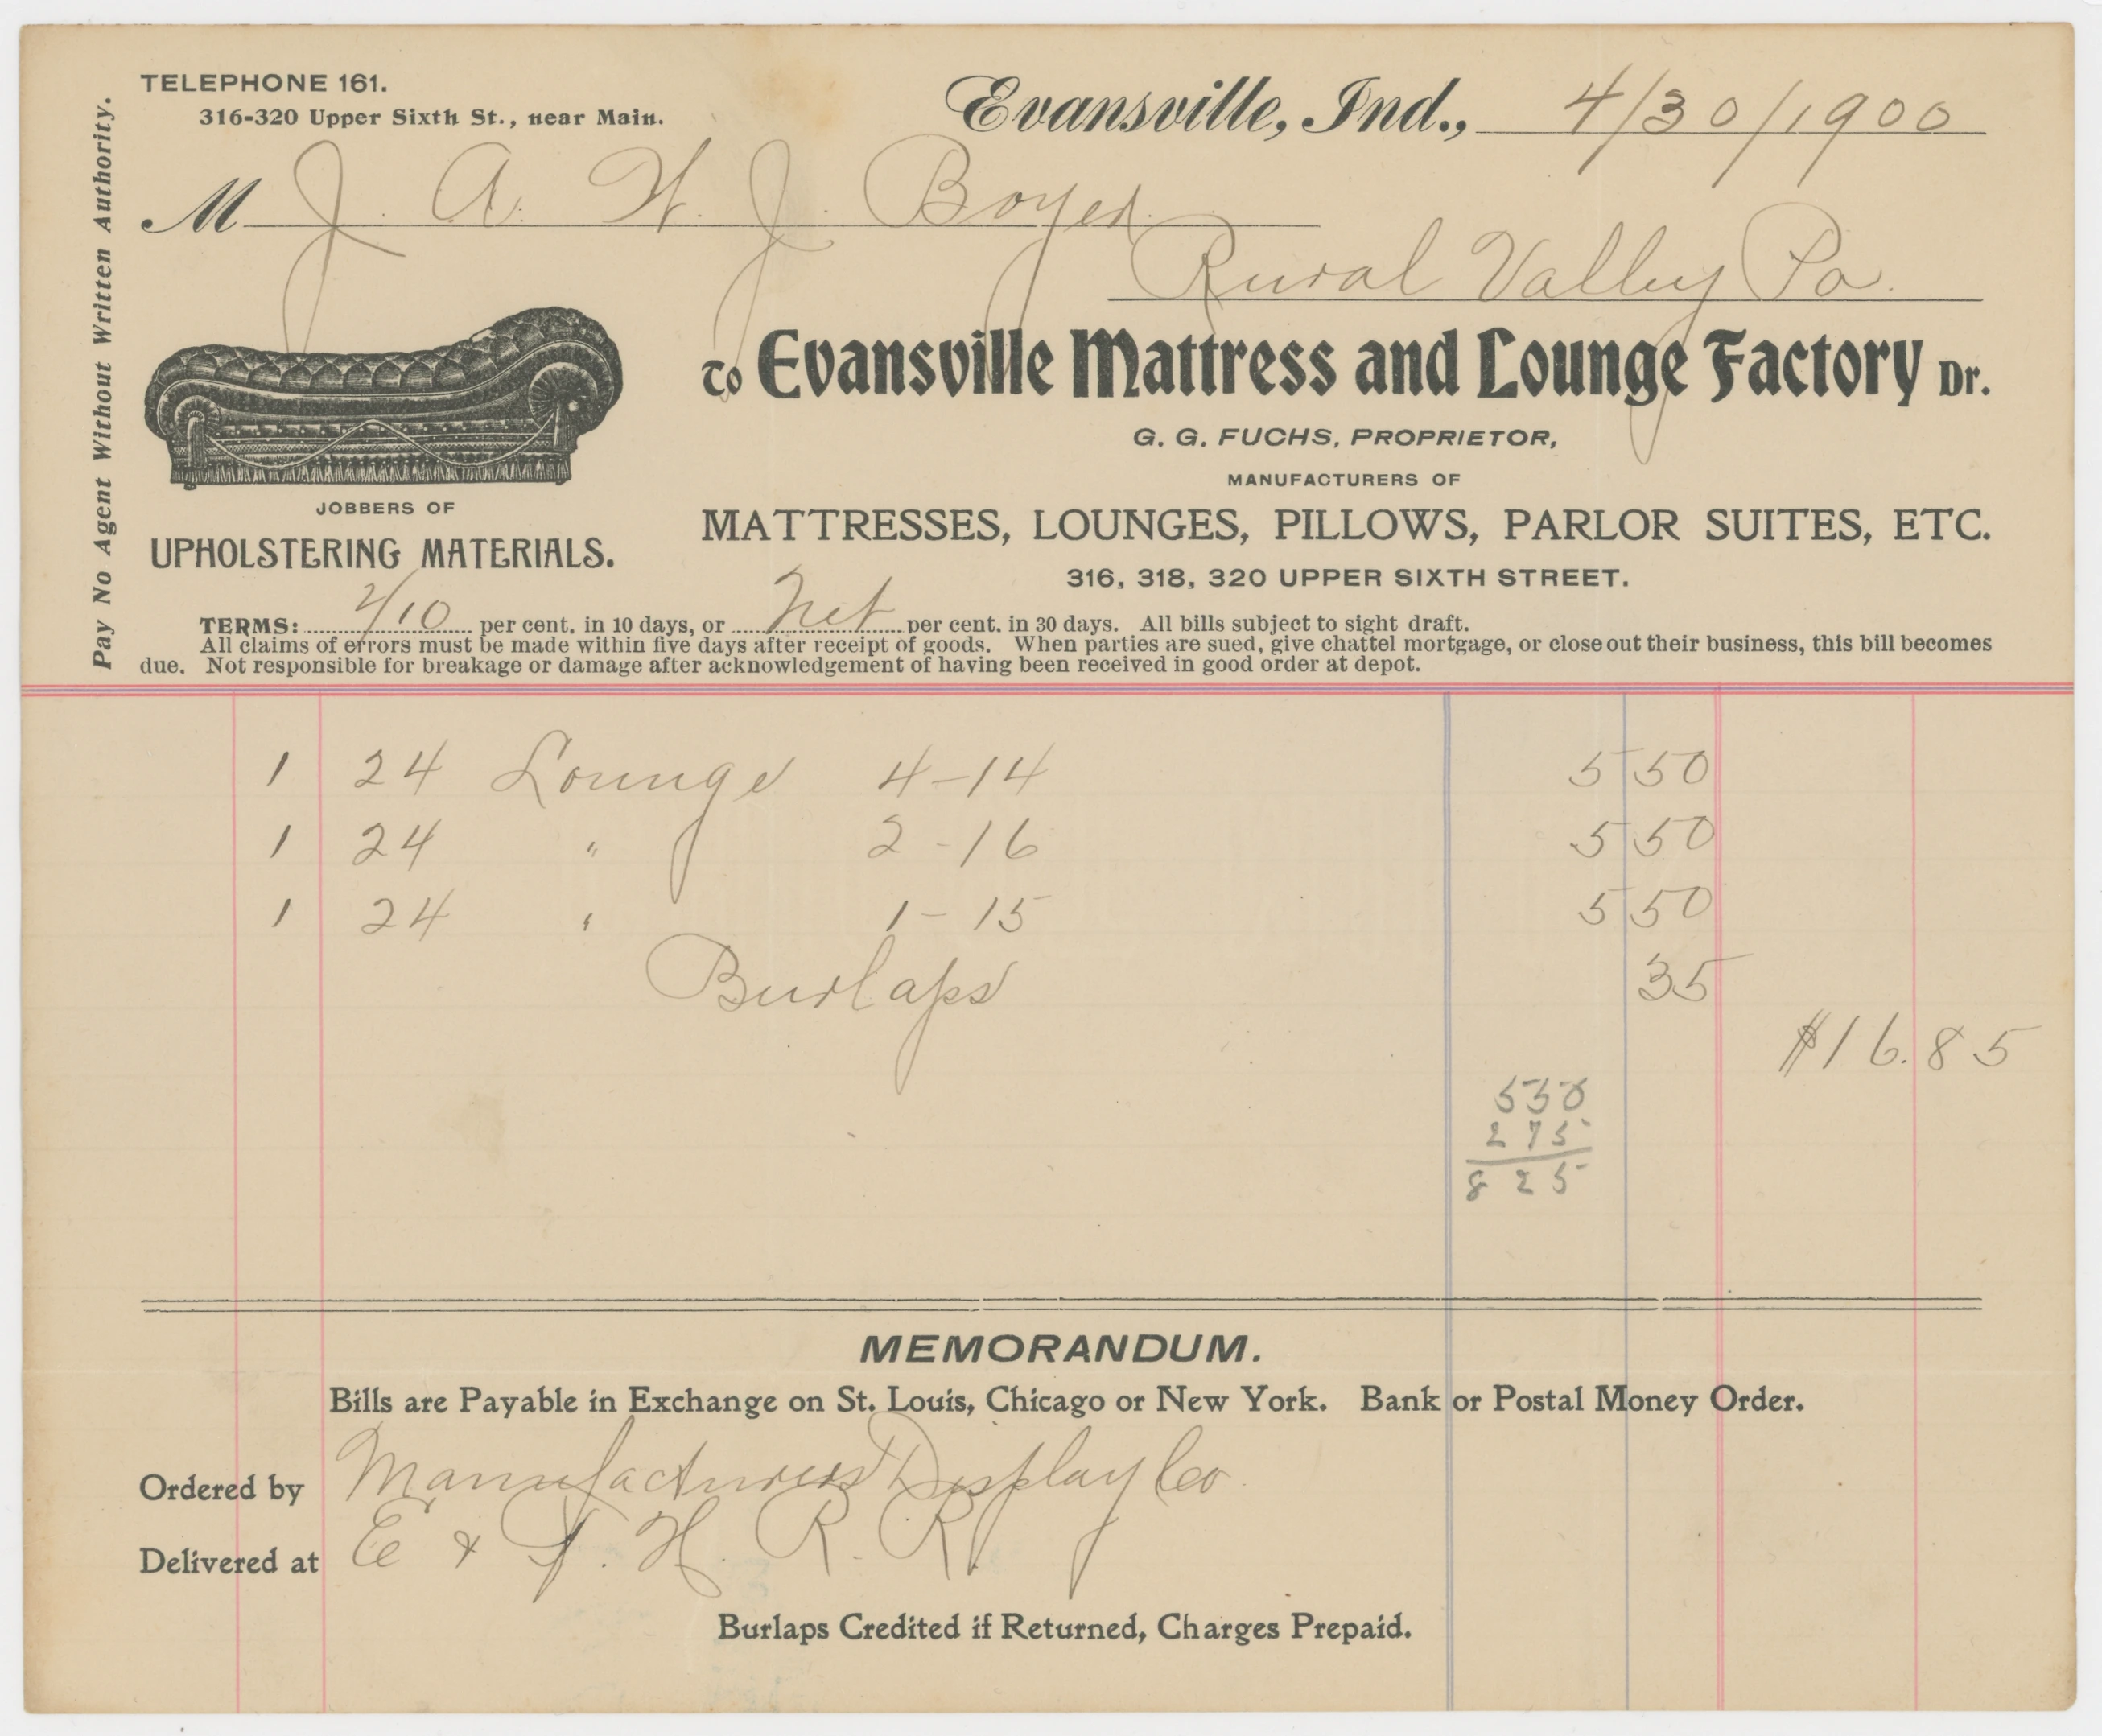 TELEPHONE 161.
316-320 Upper Sixth St., near Main.
Evansville, Ind., 4/30/1900
M J. A. W. J. Boyer
Rural Valley Pa.
Pay No Agent Without Written Authority.
To Evansville Mattress and Lounge Factory Dr.
G. G. FUCHS, PROPRIETOR,
MANUFACTURERS OF
MATTRESSES, LOUNGES, PILLOWS, PARLOR SUITES, ETC.
316, 318, 320 UPPER SIXTH STREET.
JOBBERS OF
UPHOLSTERING MATERIALS.
TERMS: 2/10 per cent. in 10 days, or Net per cent. in 30 days. All bills subject to sight draft.
All claims of errors must be made within five days after receipt of goods. When parties are sued, give chattel mortgage, or close out their business, this bill becomes
due. Not responsible for breakage or damage after acknowledgement of having been received in good order at depot.
1 24 Lounge 4-14 5 50
1 24 " 2-16 5 50
1 24 " 1-15 5 50
Burlaps 35
$16.85
550
275
825
MEMORANDUM.
Bills are Payable in Exchange on St. Louis, Chicago or New York. Bank or Postal Money Order.
Ordered by Manufacturers Display Co
Delivered at E & T. H. R. R.
Burlaps Credited if Returned, Charges Prepaid.